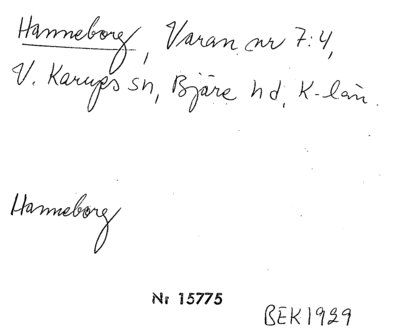 Hanneborg, Varan nr 7:4,
V. Karups sn, Bjäre hd, K-län.
Hanneborg
Nr 15775
BEK1929